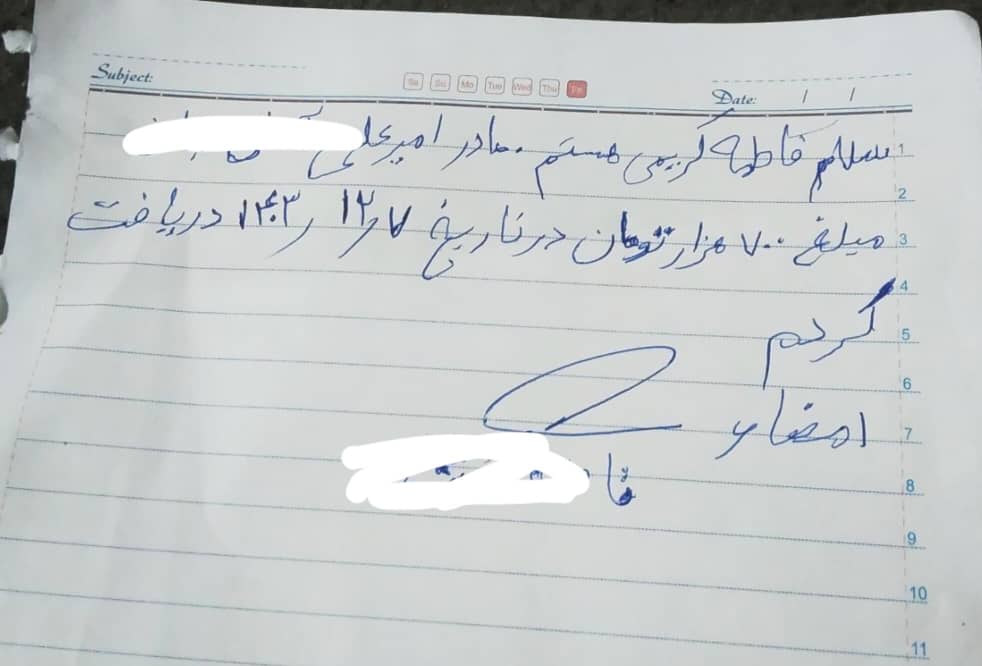 Subject:
Sa Su Mo Tue Wed Thu Fri
Date: / /
سلام فاطمه کریمی هستم . مادر امیرعلی
مبلغ ۷۰۰ هزار تومان در تاریخ ۱۲/۷/ ۱۴۰۳ دریافت
کردم
امضاء
1
2
3
4
5
6
7
8
9
10
11